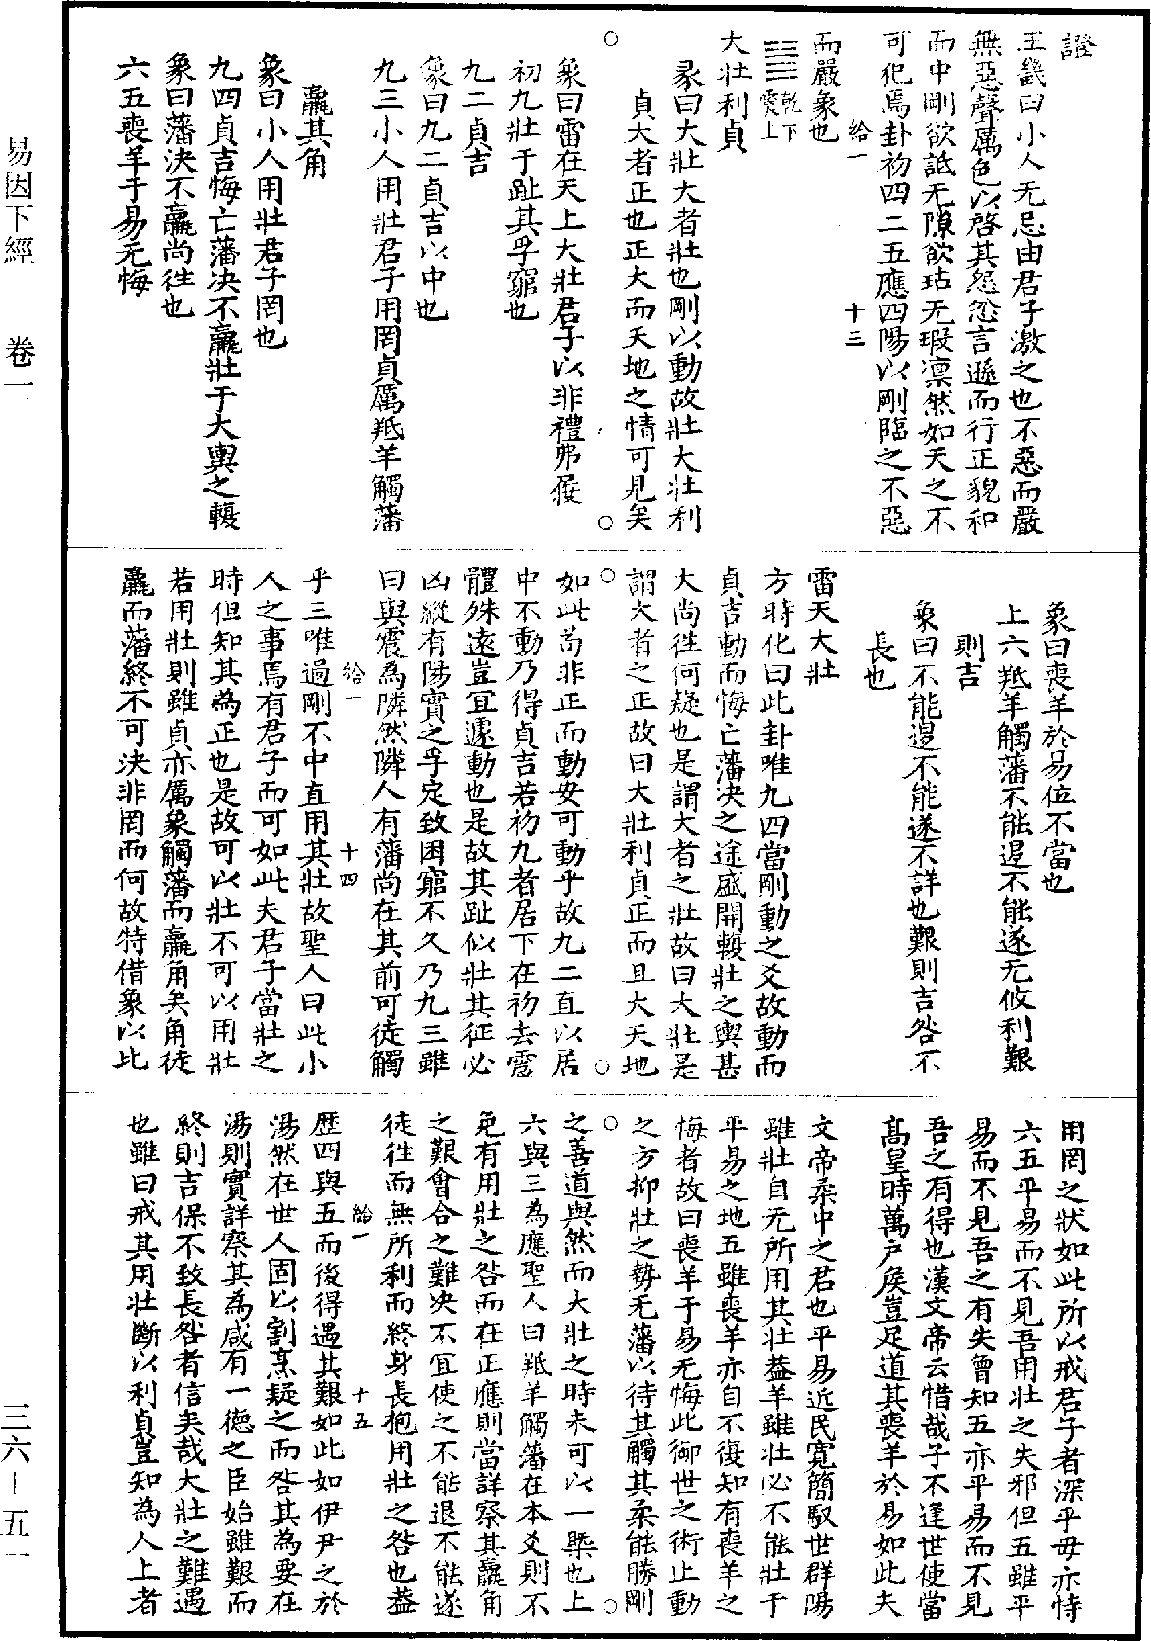 證
王畿曰小人无忌由君子激之也不惡而嚴
無惡聲厲色以啓其怨忿言遜而行正貌和
而中剛欲詆无隙欲玷无瑕凜然如天之不
可犯焉卦初四二五應四陽以剛臨之不惡
給一 十三
而嚴象也
䷡乾下震上
大壯利貞
彖曰大壯大者壯也剛以動故壯大壯利
貞大者正也正大而天地之情可見矣
象曰雷在天上大壯君子以非禮弗履
初九壯于趾其孚窮也
九二貞吉
象曰九二貞吉以中也
九三小人用壯君子用罔貞厲羝羊觸藩
羸其角
象曰小人用壯君子罔也
九四貞吉悔亡藩决不羸壯于大輿之輹
象曰藩決不羸尚往也
六五喪羊于易无悔
象曰喪羊於易位不當也
上六羝羊觸藩不能退不能遂无攸利艱
則吉
象曰不能退不能遂不詳也艱則吉咎不
長也
雷天大壯
方時化曰此卦唯九四當剛動之爻故動而
貞吉動而悔亡藩决之途盛開輹壯之輿甚
大尚徃何疑也是謂大者之壯故曰大壯是
謂大者之正故曰大壯利貞正而且大天地
如此苟非正而動安可動乎故九二直以居
中不動乃得貞吉若初九者居下在初去雷
體殊遠豈宜遽動也是故其趾似壯其征必
凶縱有陽實之孚定致困窮不久乃九三雖
曰與震為隣然隣人有藩尚在其前可徒觸
給一 十四
乎三唯過剛不中直用其壯故聖人曰此小
人之事焉有君子而可如此夫君子當壯之
時但知其為正也是故可以壯不可以用壯
若用壯則雖貞亦厲象觸藩而羸角矣角徒
羸而藩終不可決非罔而何故特借象以比
用罔之狀如此所以戒君子者深乎毋亦恃
六五平易而不見吾用壯之失邪但五雖平
易而不見吾之有失曾知五亦平易而不見
吾之有得也漢文帝云惜哉子不逢世使當
高皇時萬户侯豈足道其喪羊於易如此夫
文帝柔中之君也平易近民寬簡馭世群陽
雖壯自无所用其壯益羊雖壯必不能壯于
平易之地五雖喪羊亦自不復知有喪羊之
悔者故曰喪羊于易无悔此御世之術止動
之方抑壯之勢无藩以待其觸其柔能勝剛
之善道與然而大壯之時未可以一槩也上
六與三為應聖人曰羝羊觸藩在本爻則不
免有用壯之咎而在正應則當詳察其羸角
之艱會合之難决不宜使之不能退不能遂
徒徃而無所利而終身長抱用壯之咎也葢
給一 十五
歷四與五而後得遇其艱如此如伊尹之於
湯然在世人固以割烹疑之而咎其為要在
湯則實詳察其為咸有一德之臣始雖艱而
終則吉保不致長咎者信矣哉大壯之難遇
也雖曰戒其用壯斷以利貞豈知為人上者
易因下經 卷一
三六－五一